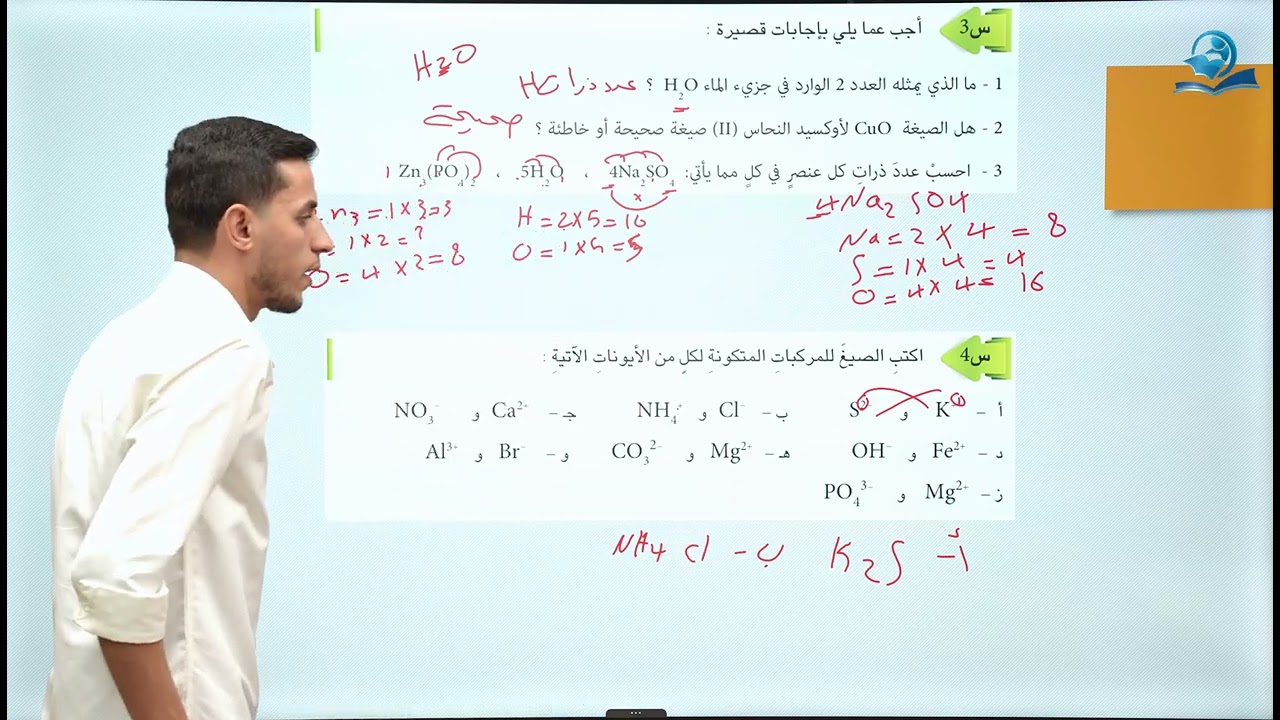 س3 أجب عما يلي بإجابات قصيرة :
H2O
1 - ما الذي يمثله العدد 2 الوارد في جزيء الماء H₂O ؟ عدد ذرا
2 - هل الصيغة CuO لأوكسيد النحاس (II) صيغة صحيحة أو خاطئة ؟ صحيحة
3 - احسبْ عددَ ذراتِ كل عنصرٍ في كلٍ مما يأتي: 4Na₂SO₄ ، 5H₂O ، Zn₃(PO₄)₂
4Na2 SO4
Na = 2 × 4 = 8
S = 1 × 4 = 4
O = 4 × 4 = 16
H = 2×5 = 10
O = 1×5 = 5
= 1×3 = 3
= 1×2 =
O = 4 × 2 = 8
س4 اكتبِ الصيغَ للمركباتِ المتكونةِ لكلٍ من الأيوناتِ الآتيةِ :
أ – K و S²⁻ ب – Cl⁻ و NH₄⁺ جـ – Ca²⁺ و NO₃⁻
د – Fe²⁺ و OH⁻ هـ – Mg²⁺ و CO₃²⁻ و – Br⁻ و Al³⁺
ز – Mg²⁺ و PO₄³⁻
أ – K2S ب – NH4 Cl